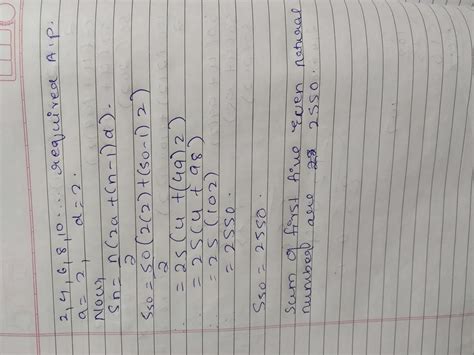 2, 4, 6, 8, 10 .... required A.P.
a = 2, d = 2.
Now,
Sn = n/2 (2a + (n-1)d).
S50 = 50/2 (2(2) + (50-1)2)
= 25 (4 + (49)2)
= 25 (4 + 98)
= 25 (102)
= 2550.
S50 = 2550.
Sum of first five even natural
number are 2550.